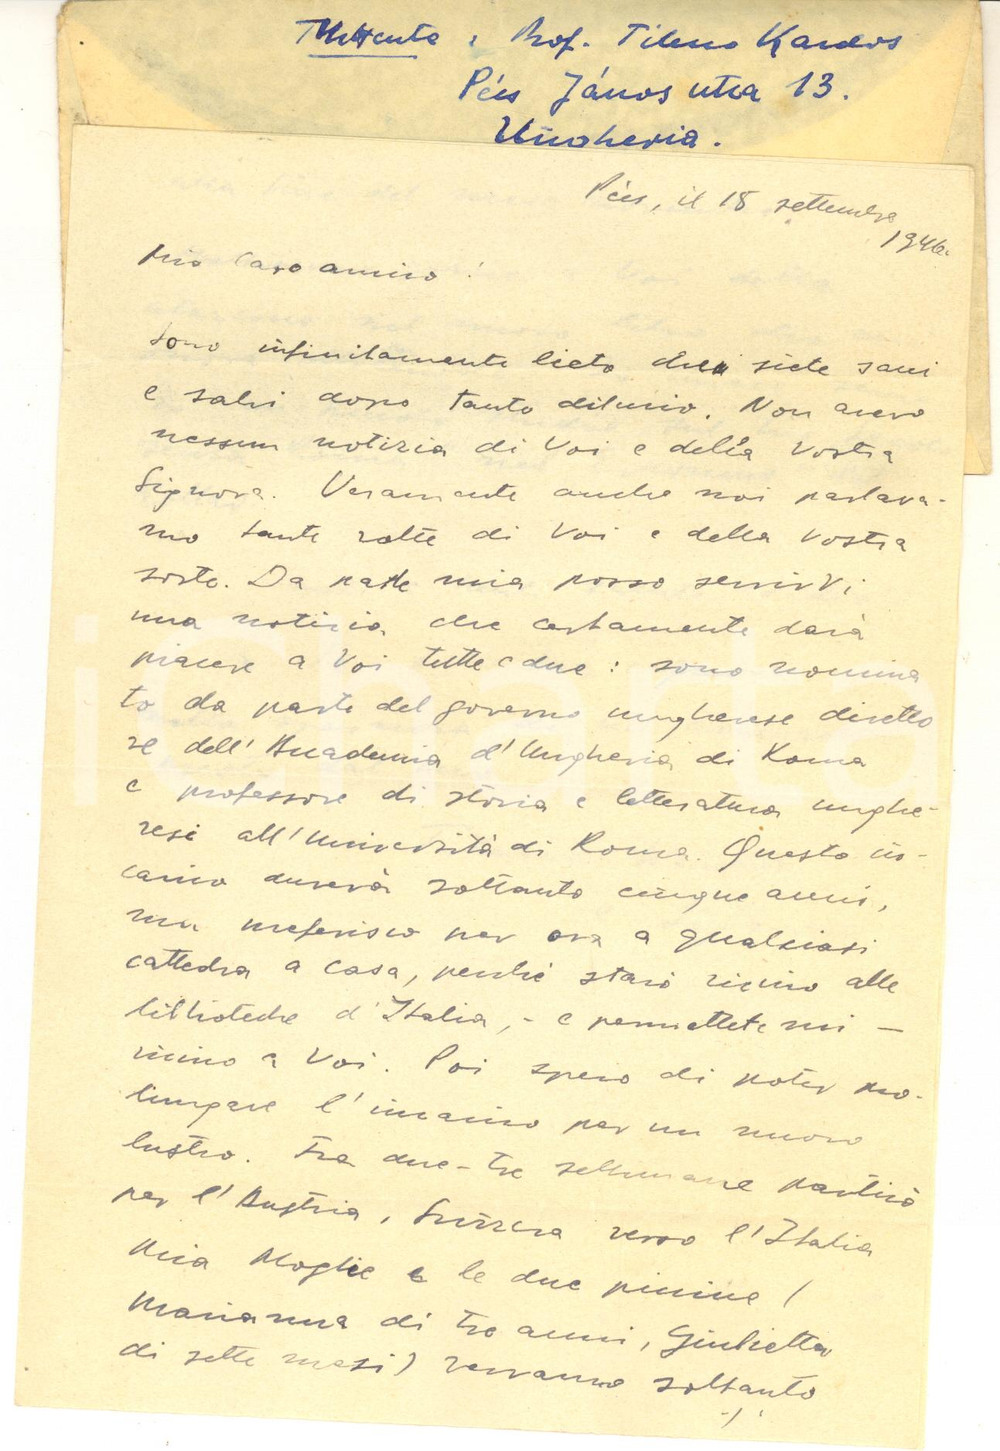 Mittente : Prof. Tiberio Kardos
Pécs János utca 13.
Ungheria.
Pécs, il 18 settembre
1946.
Mio caro amico !
Sono infinitamente lieto che siete sani
e salvi dopo tanto diluvio. Non avevo
nessun notizia di Voi e della Vostra
Signora. Veramente anche noi parlava-
mo tante volte di Voi e della Vostra
sorte. Da parte mia posso servirVi
una notizia che certamente darà
piacere a Voi tutte e due : sono nomina
to da parte del governo ungherese diretto
re dell' Accademia d'Ungheria di Roma
e professore di storia e letteratura unghe-
resi all'Università di Roma. Questo in-
carico durerà soltanto cinque anni,
ma preferisco per ora a qualsiasi
cattedra a casa, perché starò vicino alle
biblioteche d'Italia, - e permettetemi —
vicino a Voi. Poi spero di poter pro-
lungare l'incarico per un nuovo
lustro. Fra due-tre settimane partirò
per l'Austria, Svizzera verso l'Italia
Mia Moglie e le due piccine (
Marianna di tre anni, Giulietta
di sette mesi) verranno soltanto
-/'